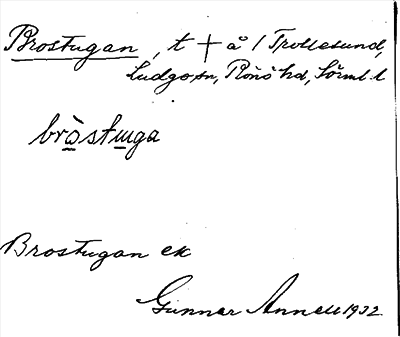 Brostugan, t † å / Trollesund,
Ludgo sn, Rönö hd, Sörml. l
bròstuga
Brostugan ek
Gunnar Annell 1932